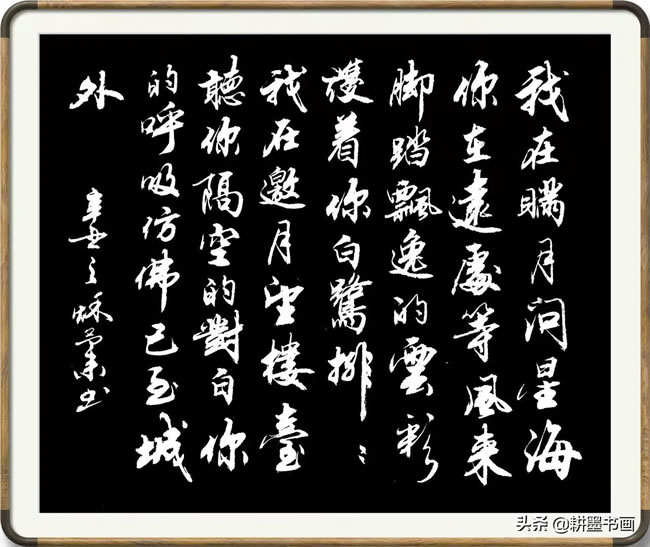 我在瞞月问星海
你在遠處等風来
脚踏飄逸的雲彩
護着你白鷺排〻
我在邀月望樓臺
聽你隔空的對白你
的呼吸仿佛已至城
外
辛丑之秋
头条 @耕墨书画